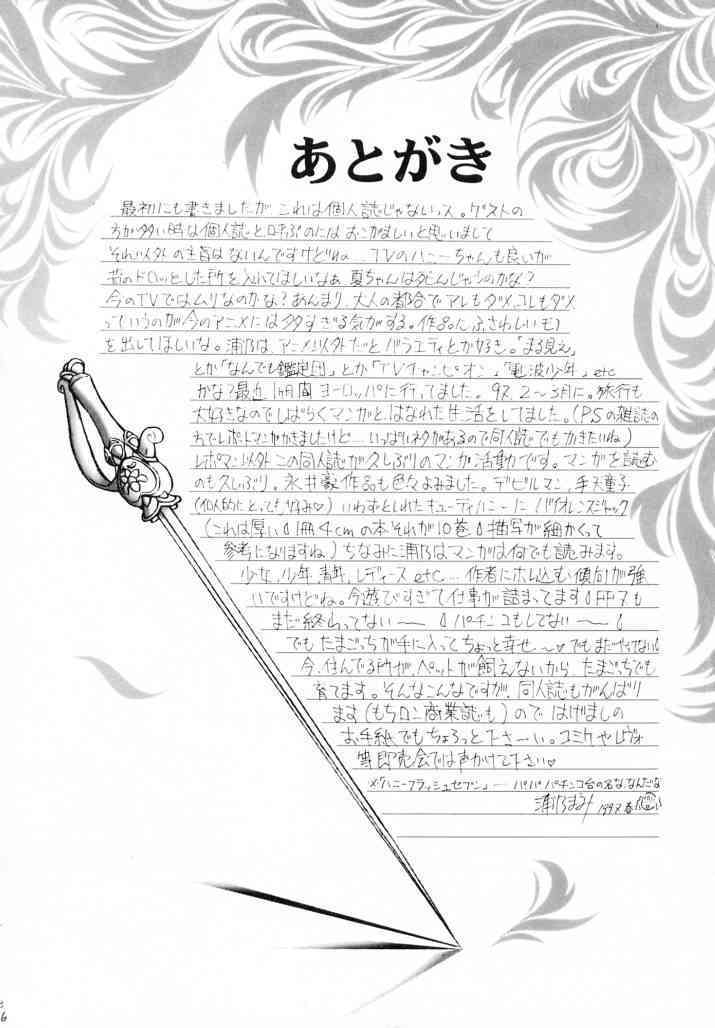 あとがき
最初にも書きましたが これは個人誌じゃないっス。ゲストの
方が多い時は個人誌と呼ぶのには おこがましいと思いまして
それ以外の主旨はないんですけどねの TVのハニーちゃんも良いが
昔のドロッとした所を入れてほしいなぁ 夏ちゃんは死んじゃうのかな?
今のTVではムリなのかな?あんまり、大人の都合でアレもダメ、コレもダメ
っていうのが今のアニメには多すぎる気がする。作品にふさわしいモノ
を出してほしいな。浦乃は、アニメ以外だとバラエティとか好き。「まる見え」
とか「なんでも鑑定団」とか「TVチャンピオン」「電波少年」etc
かな?最近1ヵ月間ヨーロッパに行ってました。97. 2〜3月に。旅行も
大好きなのでしばらくマンガとはなれた生活をしてました。(P.Sの雑誌の
れでレポートマンガかきましたけど…いっぱいネタがあるので同人誌ででもかきたいね)
レポマン以外この同人誌が久しぶりのマンガ活動です。マンガを読む
のも久しぶり。永井豪作品も色々よみました。デビルマン、手天童子
(個人的にとっても好み♡)いわずとしれたキューティーハニーにバイオレンスジャック
(これは厚い!1冊4cmの本それが10巻!描写が細かくって
参考になりますね)ちなみに浦乃はマンガは何でも読みます。
少女、少年、青年、レディース etc… 作者にホレ込む傾向が強
いですけどね。今遊びすぎて仕事が詰まってます!FF7も
まだ終わってない〜 !パチンコもしてない〜!
でもたまごっちが手に入ってちょっと幸せ〜♡でもまだやってない!
今、住んでる所が、ペットが飼えないから、たまごっちでも
育てます。そんなこんなですが、同人誌もがんばり
ます(もちロン商業誌も)ので はげましの
お手紙でもちょろっと下さーい。コミケやレヴォ
等即売会では声かけて下さい♡
メ「ハニーフラッシュセブン」…パパパパチンコ台の名な、なんだな
浦乃まみ 1997.春
6